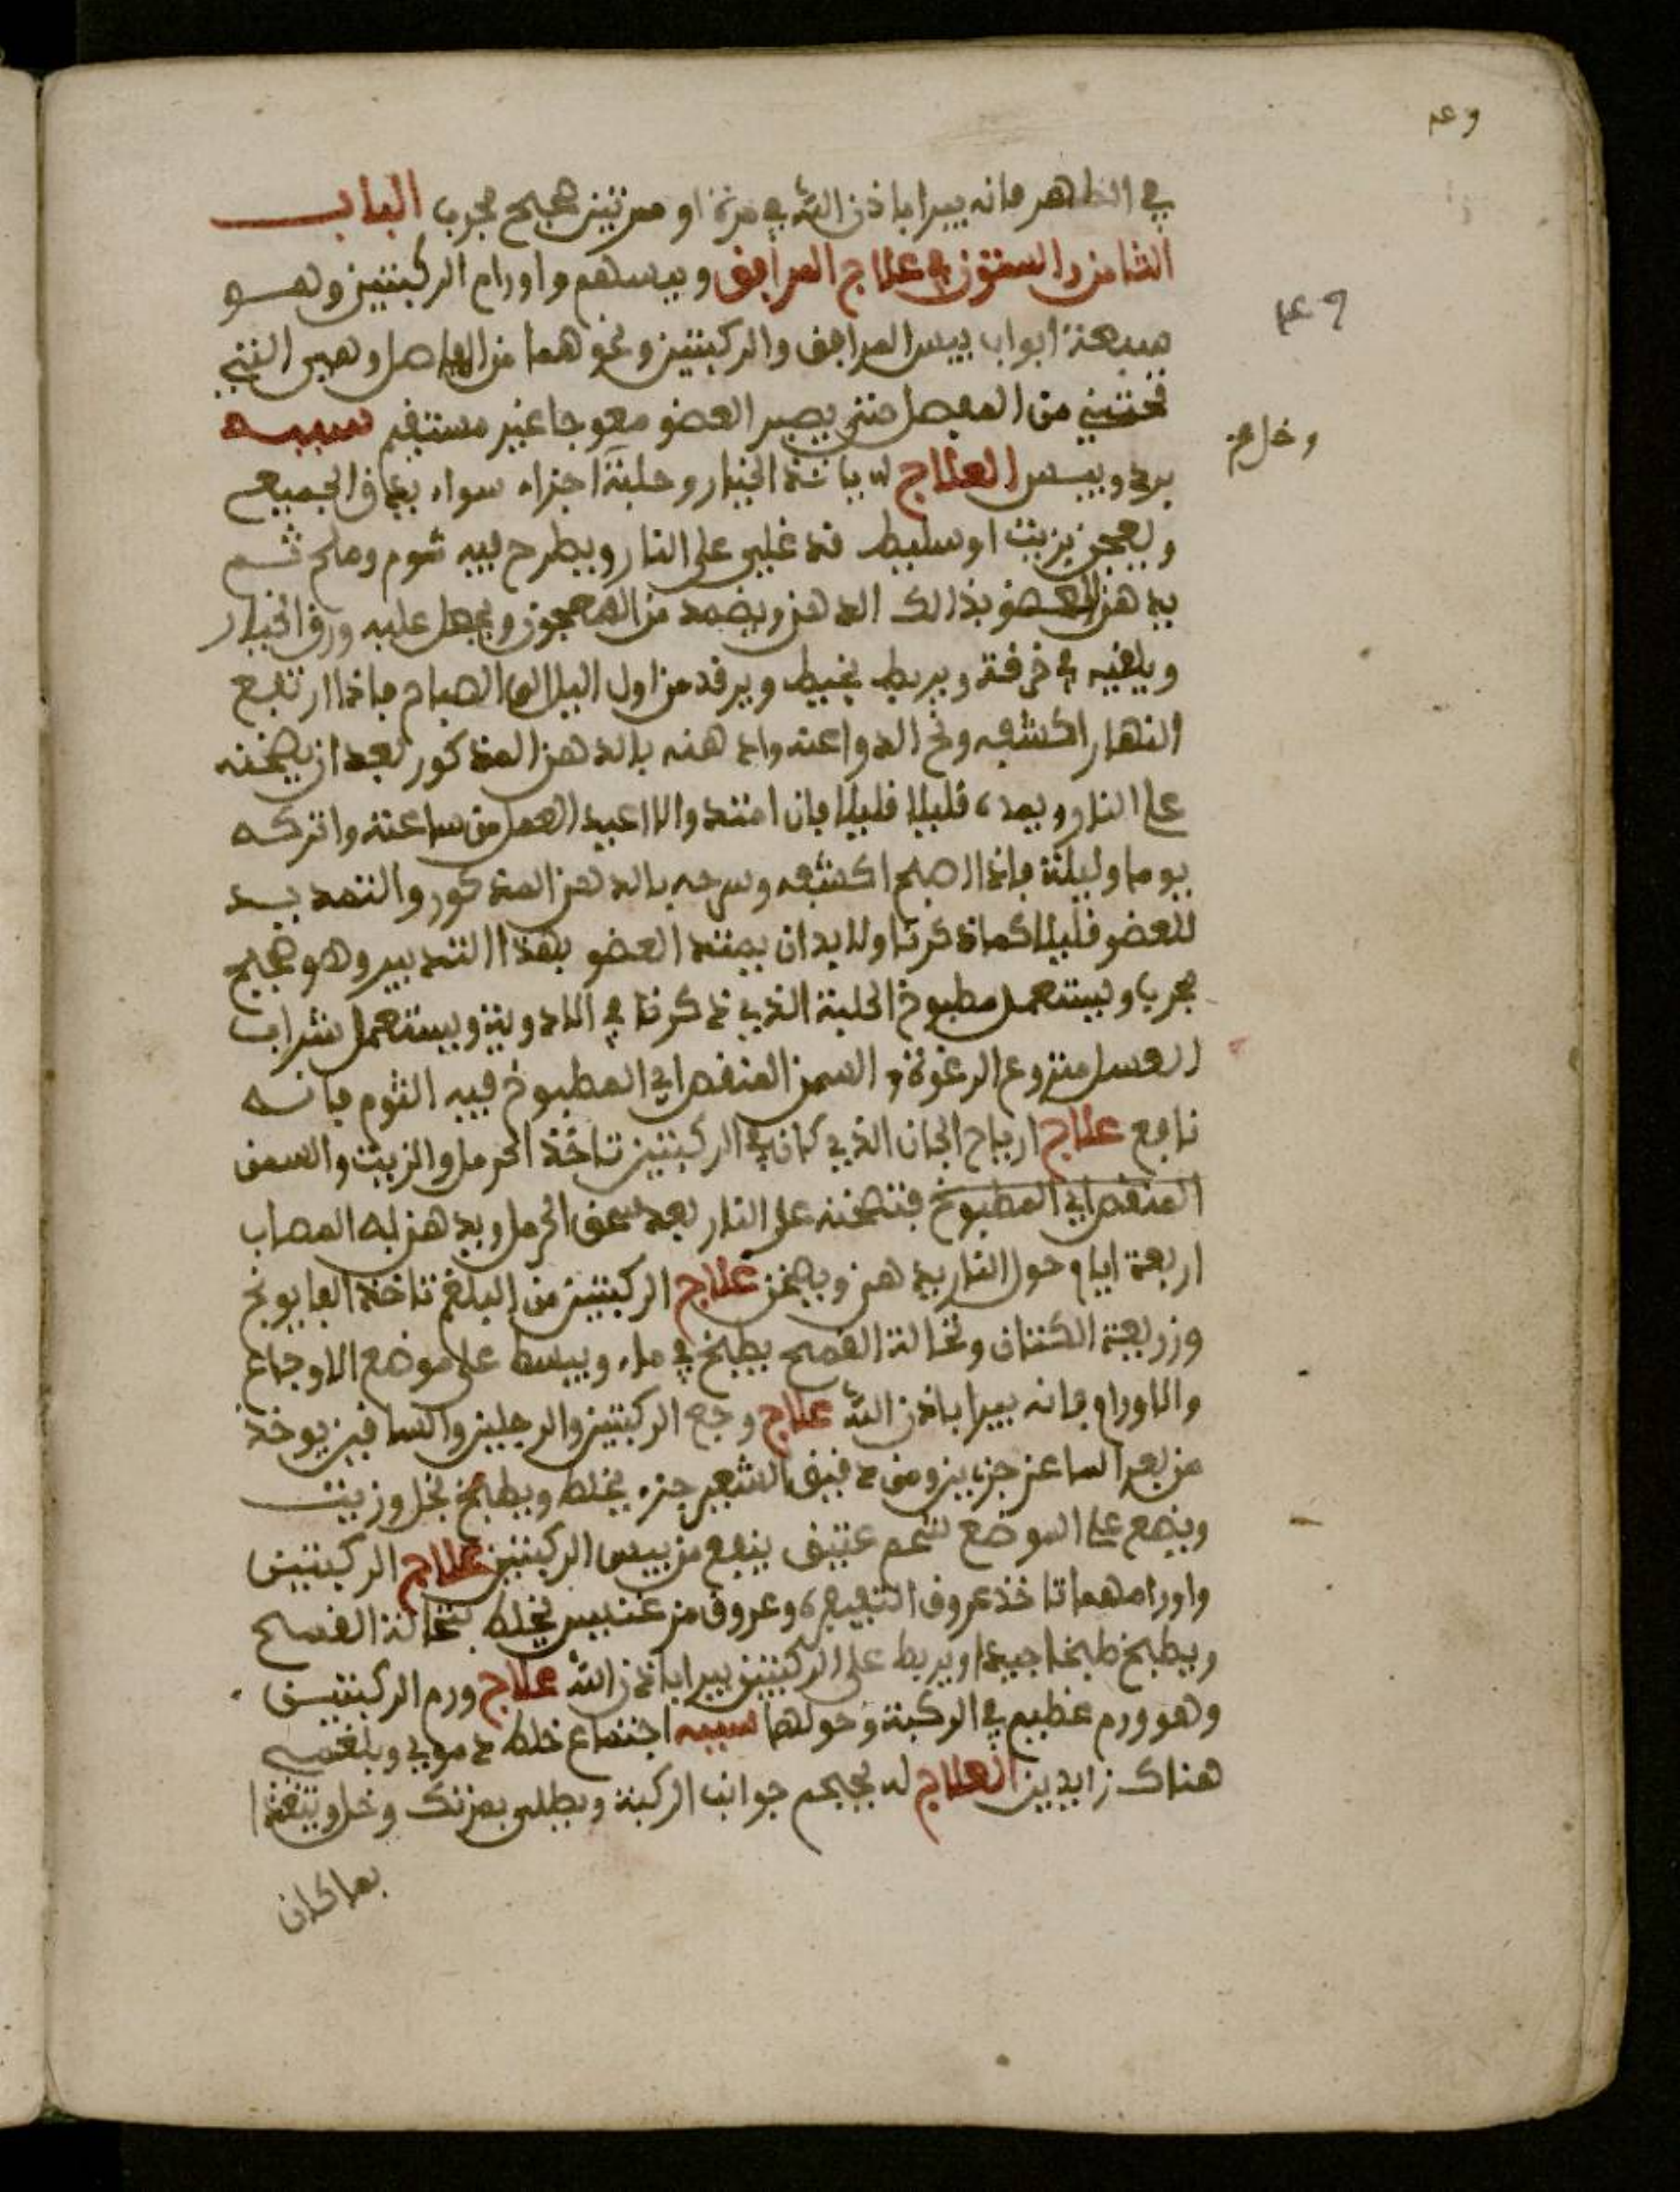 في الظاهر فانه يبرا باذن الله في مرة او مرتين صحيح مجرب الباب
الثامن والستون في علاج المرافق ويبسهم واورام الركبتين وهو
سبعة ابواب يبس المرافق والركبتين ونحوهما من المفاصل وهي التي
تحتني من المفصل حتى يصير العضو معوجا غير مستقيم سببه
برد ويبس العلاج له ياخذ الخيار وحلبة اجزاء سواء يدق الجميع
ويعجن بزيت او سليط قد غلي على النار ويطرح فيه ثوم وملح ثم
يدهن العضو بذالك الدهن ويضمد من المعجون ويجعل عليه ورق الخيار
ويلفيه في خرقة ويربط بخيط ويرقد من اول اليل الى الصباح فاذا ارتفع
النهار اكشفه ونح الدوا عنه وادهنه بالدهن المذكور بعد ان يسخنه
على النار ويمده قليلا قليلا فان امتد والا اعيد العمل من ساعته واتركه
يوما وليلة فاذا اصبح اكشفه وسرحه بالدهن المذكور والتمديد
للعضو قليلا كما ذكرنا ولا بد ان يمتد العضو بهذا التدبير وهو صحيح
مجرب ويستعمل مطبوخ الحلبة الذي ذكرنا في الادوية ويستعمل شراب
العسل منزوع الرغوة والسمن المنقصراني المطبوخ فيه الثوم فانه
نافع علاج ارياح الجان الذي كان في الركبتين تاخذ الحرمل والزيت والسمن
المنقصراني المطبوخ فتسخنه على النار بعد سحق الحرمل ويدهن به المصاب
اربعة ايام وحول النار يدهن ويسخن علاج الركبتين من البلغم تاخذ البابونج
وزريعة الكتان ونخالة القمح يطبخ في ماء ويبسط على موضع الاوجاع
والاورام فانه يبرا باذن الله علاج وجع الركبتين والرجلين والساقين يوخذ
من بعر الماعز جزءين ومن دقيق الشعير جزء يخلط ويطبخ بخل وزيت
ويضع على الموضع شحم عتيق ينفع من يبس الركبتين علاج الركبتين
واورامهما تاخذ عروف وعروف من يخلط بنخالة القمح
ويطبخ طبخا جيدا ويربط على الركبتين يبرا باذن الله علاج ورم الركبتين
وهو ورم عظيم في الركبة وحولها سببه اجتماع خلط دموي وبلغمي
هناك زايدين العلاج له يحجم جوانب الركبة ويطلى بمرتك وخل ويتغذا
بما كان